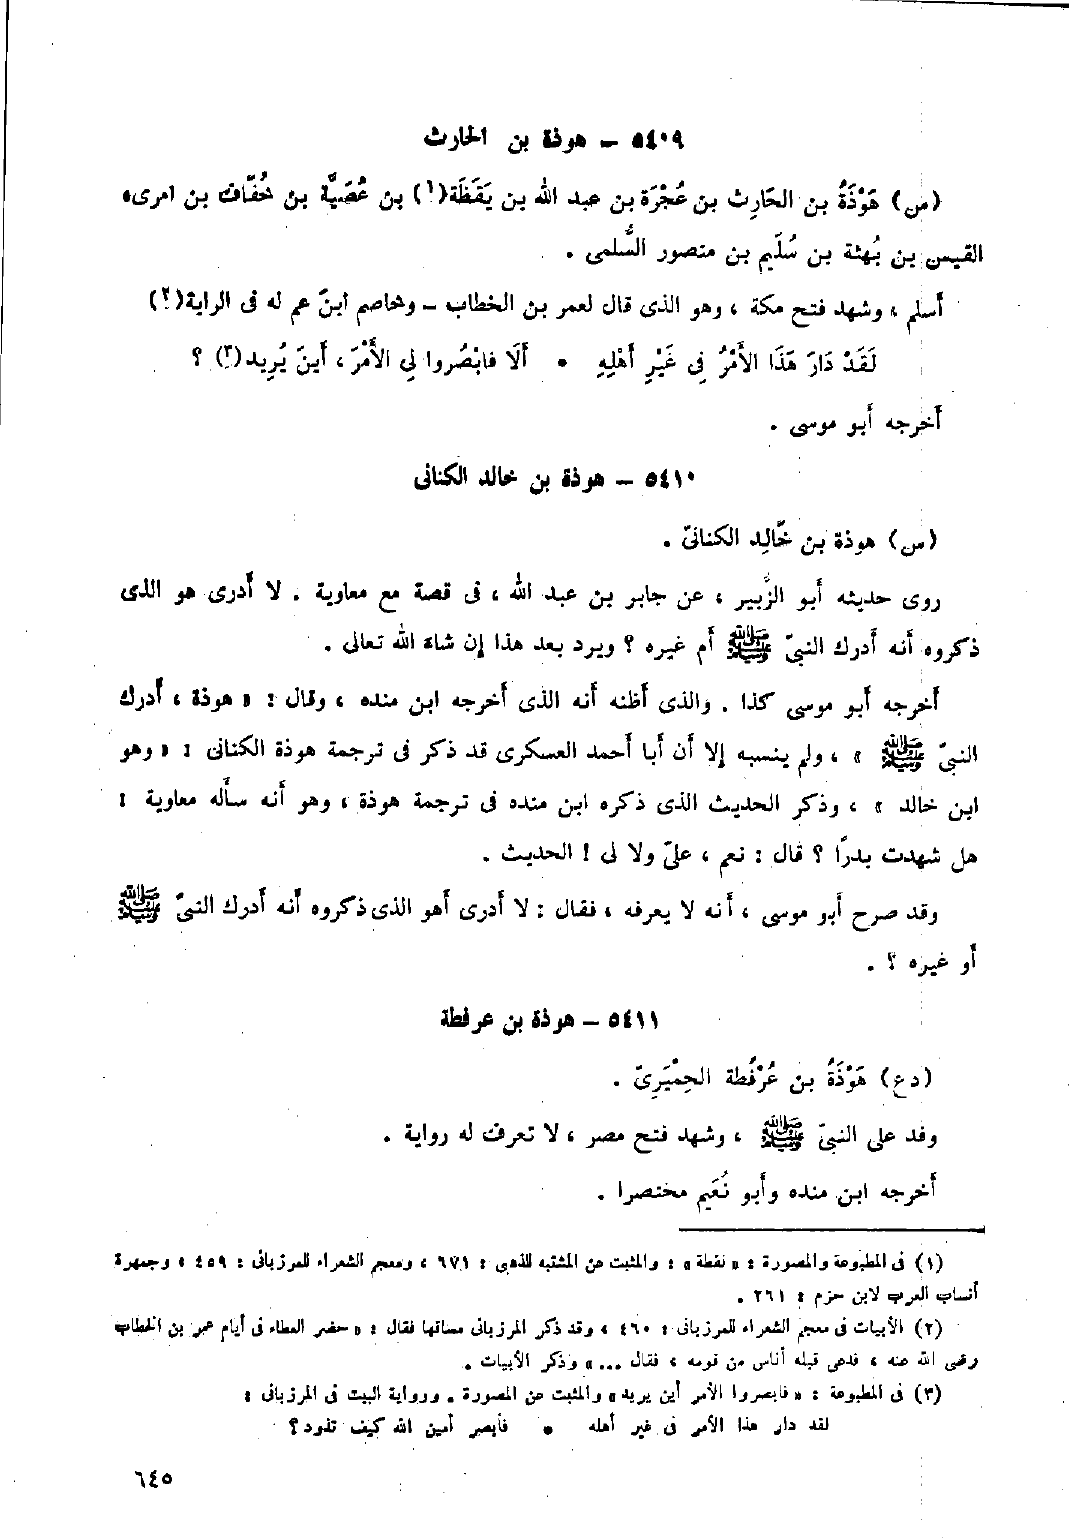 ٥٤٠٩ – هوذة بن الحارث
(س) هَوْذَةُ بن الحَارِث بن عُجْرَة بن عبد الله بن يَقَظَة(١) بن عُصَيَّة بن خُفَاف بن امرىء
القيس بن بُهثة بن سُلَيم بن منصور السُّلمى .
أسلم ، وشهد فتح مكة ، وهو الذى قال لعمر بن الخطاب – وخاصم ابنَ عم له فى الراية(٢)
لَقَدْ دَارَ هَذَا الأَمْرُ فِى غَيْرِ أَهْلِهِ • أَلَا فابْصُروا لِي الأَمْرَ ، أَينَ يُرِيد(٣) ؟
أخرجه أبو موسى .
٥٤١٠ – هوذة بن خالد الكنانى
(س) هوذة بن خَالِد الكنانىّ .
روى حديثه أبو الزُّبير ، عن جابر بن عبد الله ، فى قصة مع معاوية . لا أدرى هو الذى
ذكروه أنه أدرك النبىّ ﷺ أم غيره ؟ ويرد بعد هذا إن شاء الله تعالى .
أخرجه أبو موسى كذا . والذى أظنه أنه الذى أخرجه ابن منده ، وقال : « هوذة ، أدرك
النبىّ ﷺ » ، ولم ينسبه إلا أن أبا أحمد العسكرى قد ذكر فى ترجمة هوذة الكنانى : « وهو
ابن خالد » ، وذكر الحديث الذى ذكره ابن منده فى ترجمة هوذة ، وهو أنه سأله معاوية :
هل شهدت بدرًا ؟ قال : نعم ، علىّ ولا لى ! الحديث .
وقد صرح أبو موسى ، أنه لا يعرفه ، فقال : لا أدرى أهو الذى ذكروه أنه أدرك النبىّ ﷺ
أو غيره ؟ .
٥٤١١ – هوذة بن عرفطة
(دع) هَوْذَةُ بن عُرْفُطة الحِمْيَرِىّ .
وفد على النبىّ ﷺ ، وشهد فتح مصر ، لا تعرف له رواية .
أخرجه ابن منده وأبو نُعَيم مختصرا .
(١) فى المطبوعة والمصورة : « نقطة » : والمثبت عن المشتبه للذهبى : ٦٧١ ، ومعجم الشعراء للمرزبانى : ٤٥٩ ، وجمهرة
أنساب العرب لابن حزم : ٢٦١ .
(٢) الأبيات فى معجم الشعراء للمرزبانى : ٤٦٠ ، وقد ذكر المرزبانى مساقها فقال : « حضر العطاء فى أيام عمر بن الخطاب
رضى الله عنه ، فدعى قبله أناس من قومه ، فقال ... » وذكر الأبيات .
(٣) فى المطبوعة : « فابصروا الأمر أين يريد » والمثبت عن المصورة . ورواية البيت فى المرزبانى :
لقد دار هذا الأمر فى غير أهله • فأبصر أمين الله كيف تذود ؟
٦٤٥